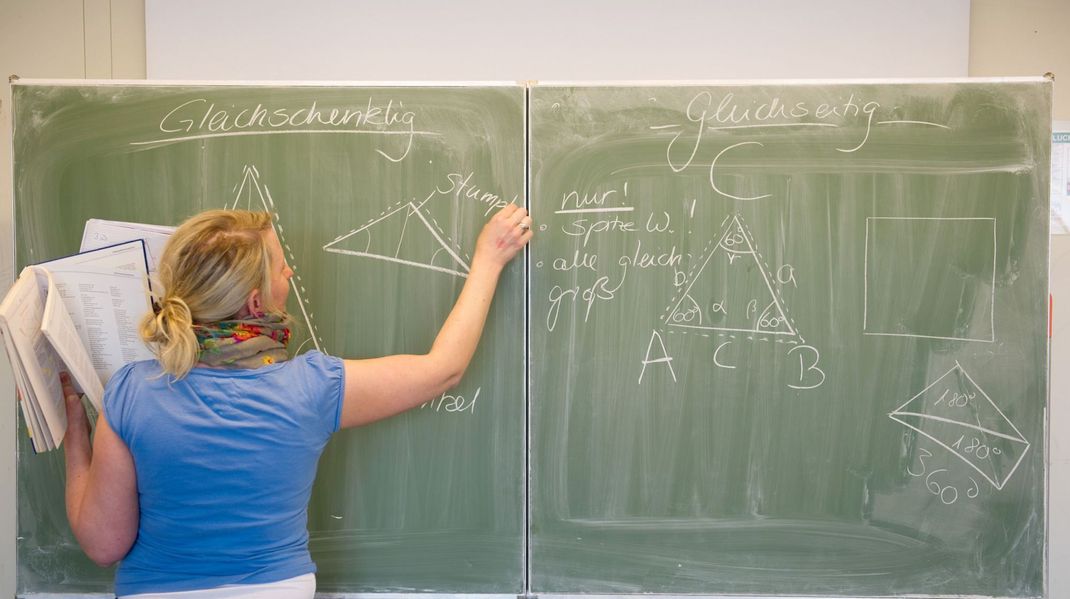 Gleichschenklig
Stumpf
Gleichseitig
nur!
• spitze W. !
• alle gleich
groß
C
60°
γ
b
a
α
β
60°
60°
A
c
B
180°
180°
360°